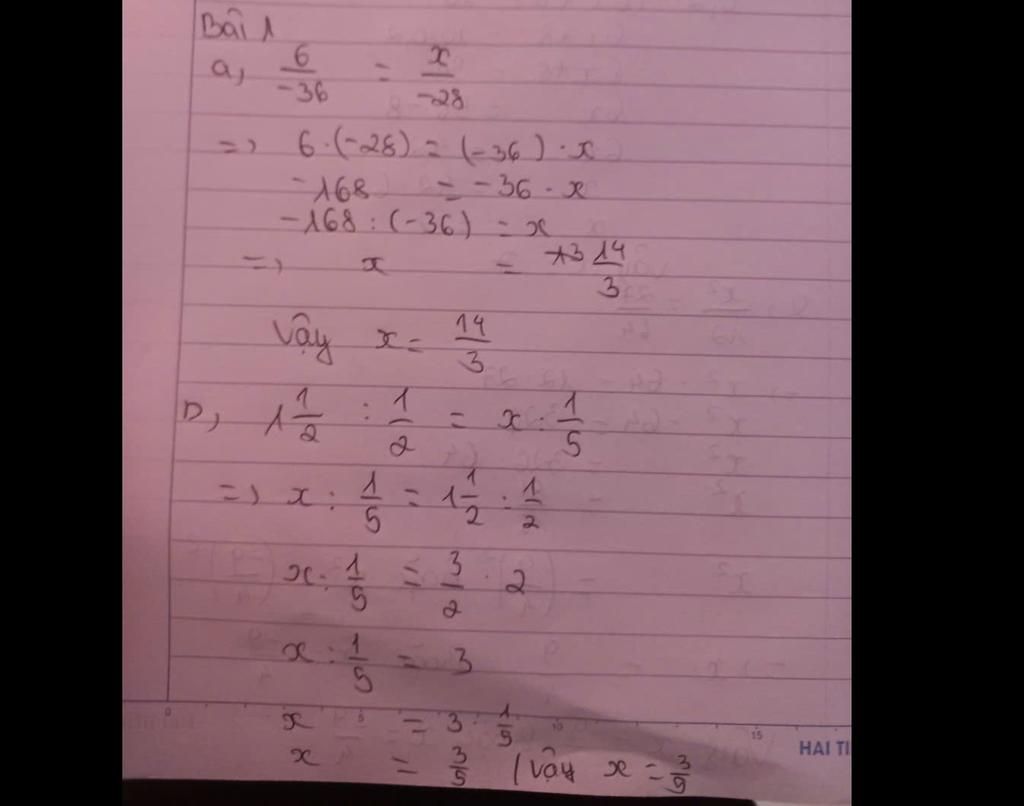 Bài 1
a, 6/-36 = x/-28
=> 6·(-28) = (-36)·x
-168 = -36·x
-168 : (-36) = x
=> x = 14/3
Vậy x = 14/3
b, 1 1/2 : 1/2 = x : 1/5
=> x : 1/5 = 1 1/2 : 1/2
x : 1/5 = 3/2 · 2
x : 1/5 = 3
x = 3 · 1/5
x = 3/5 | Vậy x = 3/5
0 5 10 15
HAI TI